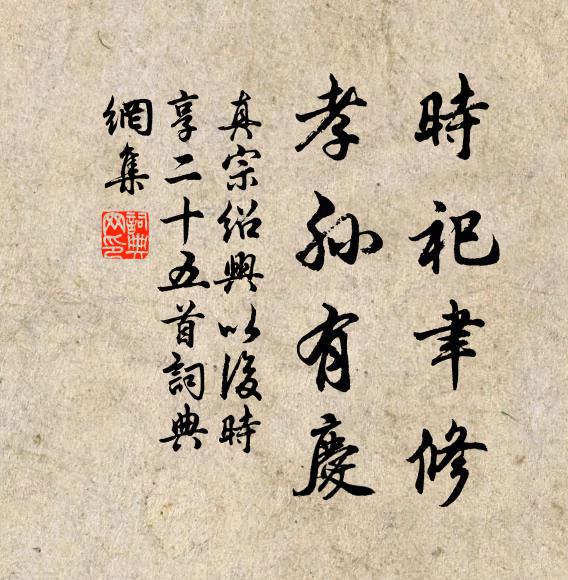 時祀聿修
孝孙有慶
真宗绍興以後時
享二十五首詞典
網集
詞典
网印